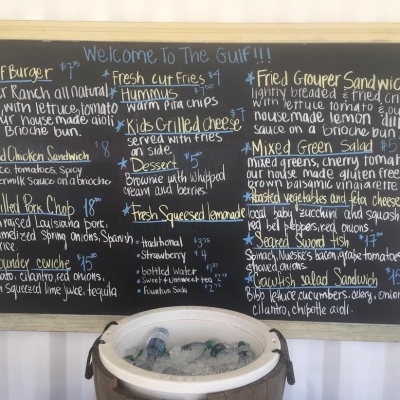 Welcome To The Gulf!!!
Burger $7.75
Ranch all natural
with lettuce, tomato
our house made aioli
Brioche bun.
Chicken Sandwich $8
tomatoes, Spicy
sauce on a brioche
Pork Chop $18.00
raised Louisiana pork,
Spring onions, Spanish
rice
ceviche $15
cilantro, red onions,
squeezed lime juice, tequila
Fresh cut Fries $4
Hummus $7.00
warm pita chips
Kids Grilled cheese $7
served with fries
on side.
Dessert $5.00
Brownie with whipped
cream and berries!
Fresh Squeesed lemonade
traditional $3.75
Strawberry $4
bottled Water
Sweet + Unsweet tea
Fountain Soda
Fried Grouper Sandwich
lightly breaded & fried
with lettuce tomato &
house made lemon
sauce on a brioche bun
Mixed Green Salad $
mixed greens, cherry tomato
our house made gluten free
brown balsamic vinaigarette
Roasted vegetables and feta cheese
local baby zucchini and squash
red bell peppers, red onions.
Seared Sword fish $17.00
Spinach, Nueske's bacon, grape tomatoes
shaved onions.
Crawfish salad Sandwich $15
Bibb lettuce cucumbers, celery, onion
cilantro, chipotle aioli.